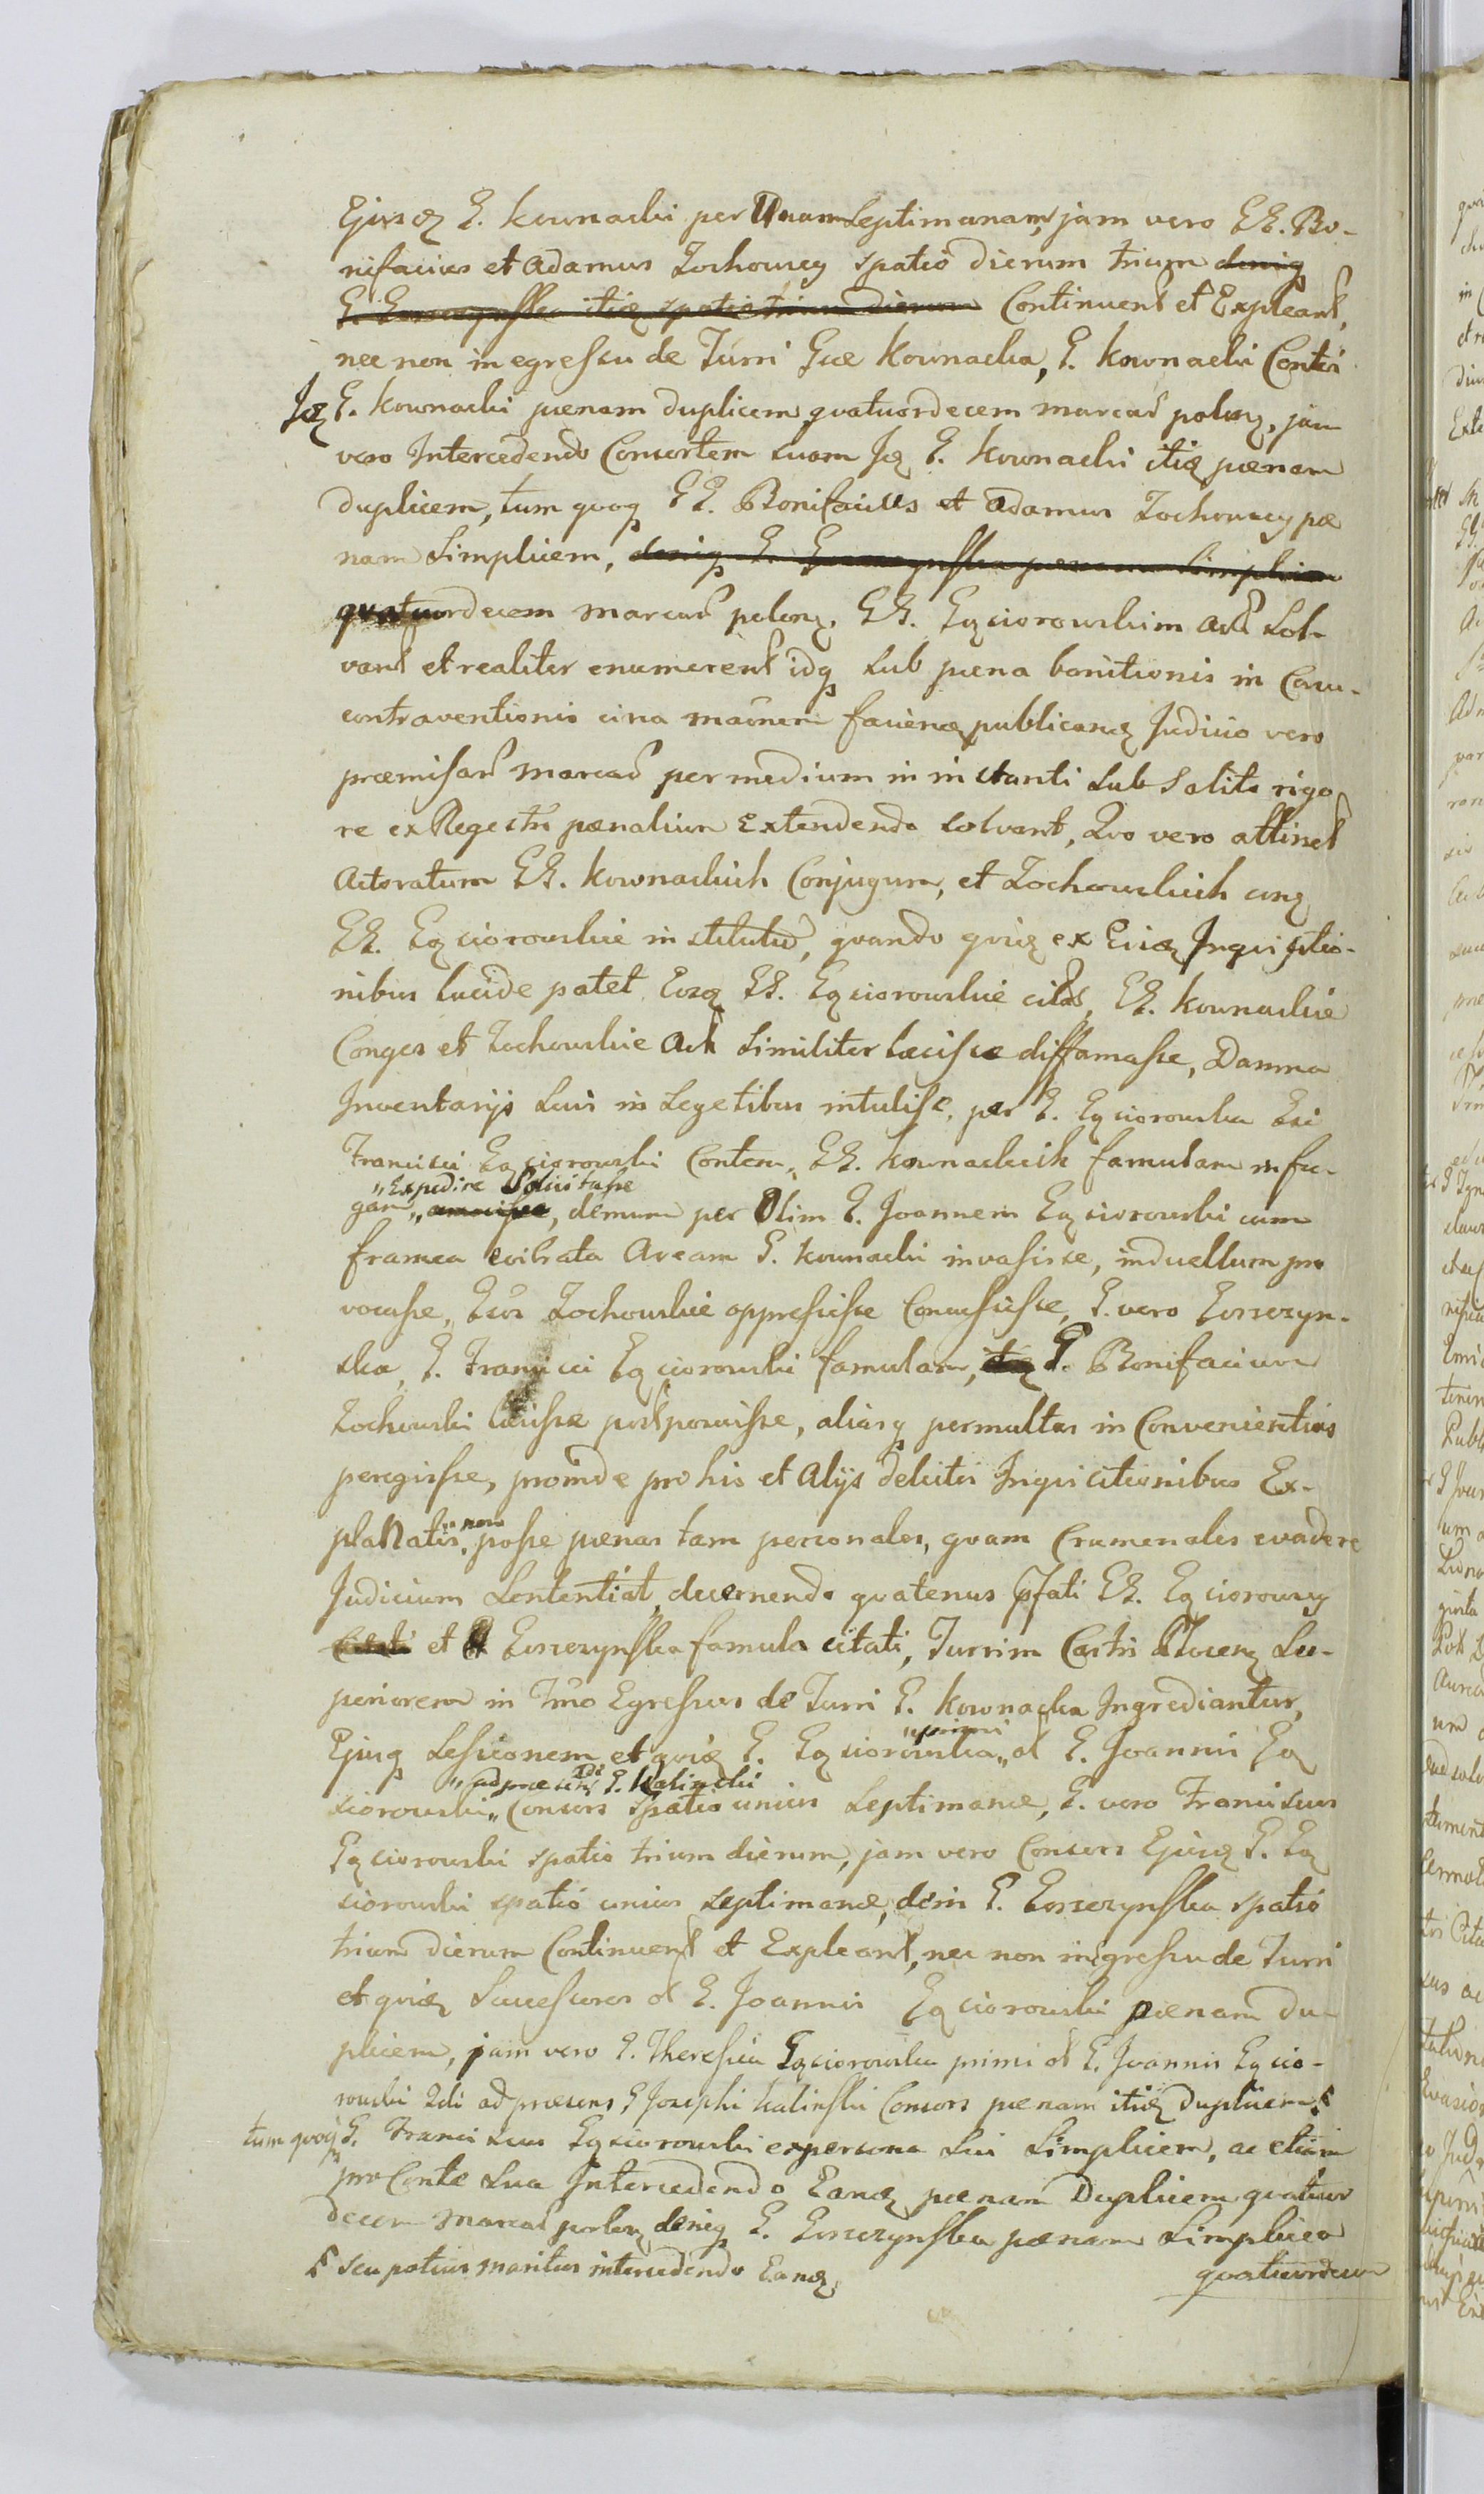 Ejusq G. Kownacki per Unam Septimanam, jam vero GG. Bo-
nifacius et Adamus Zochowscy spatio dierum trium deniq
G. itiq spatio trium dierum Continuent et Expleant,
nec non in egressu de Turri Gsa Kownacka, G. Kownacki Conteri
Jq G. Kownacki pœnam duplicem quatuordecem marcar polonq, jam
vero Intercedendo Consortem suam Jq G. Kownacki itiq pœnam
duplicem, tum quoq GG. Bonifacius et Adamus Zochowscy pœ
nam Simplicem, deniq G. pœnam Simplicem
quatuordecem marcar polonq. GG. Gąsiorowskim Actr Sol-
vant et realiter enumerent idq Sub pœna banitionis in Casu
contraventionis cina manern faciendq publicandq Judicio vero
præmissar marcar per medium in instanti Sub Solito rigo
re ex Regestri pœnalium Extendendo Solvant, Quo vero attinet
Actoratum GG. Kownackich Conjugum, et Zochowskich conq
GG. Gąsiorowskie institutu, quando quiq ex Eviq Inquisitio-
nibus lucide patet Eosq GG. Gąsiorowskie citos, GG. Kownackie
Conges et Zochowskie Act Similiter læsisse diffamasse, Damna
Inventarijs Suis in Segetibus intulisse, per G. Gąsiorowska Gsi
Francisci Gąsiorowski Contem, GG. Kownackich famulam in fu-
„Expedire Solicitasse
gam „, demum per Olim G. Joannem Gąsiorowski cum
framea evibrata Aream G. Kownacki invasisse, in duellum pro
vocasse, Eos Zochowskie oppressisse Concussisse, G. vero Gorszczyn-
ska, G. Francisci Gąsiorowski famulam, itq G. Bonifacium
Zochowski læsisse postposuisse, aliasq permultas in Convenientias
peregisse, proinde pro his et Alijs delictis Inquisitionibus Ex-
„non
planatis„ posse pœnas tam personales, quam Crumenales evadere
Judicium Sententiat, decernendo quatenus pfati GG. Gąsiorowscy
Citati et G Gorszczynska famula citati, Turrim Castri Su-
periorem in Trmo Egressus de Turri G. Kownacka Ingrediantur,
„primi
Ejusq Sessionem et quiq G. Gąsiorowska„ ol G. Joannis Gą
„ad præsens 2di G. Kalinski
siorowski„ Consors spatio unius Septimanæ, G. vero Franciscus
Gąsiorowski spatio trium dierum, jam vero Consors Ejusq G. Gą
siorowski spatio unius Septimanæ, dein G. Gorszczynska spatio
trium dierum Continuent et Expleant, nec non in egressu de Turri
et quiq Successores ol G. Joannis Gąsiorowski pœnam du-
plicem, jam vero G. Theresia Gąsiorowska primi ol G. Joannis Gąsio-
rowski 2di ad præsens G Josephi Kalinski Consors pœnam itiq duplicem
tum quoq G. Franciscus Gąsiorowski ex persona Sui Simplicem, ac etiam
pro Conte Sua Intercedendo Eanq pœnam Duplicem quatuor
decem Marcar polonq deniq G. Gorszczynska pœnam Simplicem
seu potius maritus intercedendo Eanq
quatuordecem